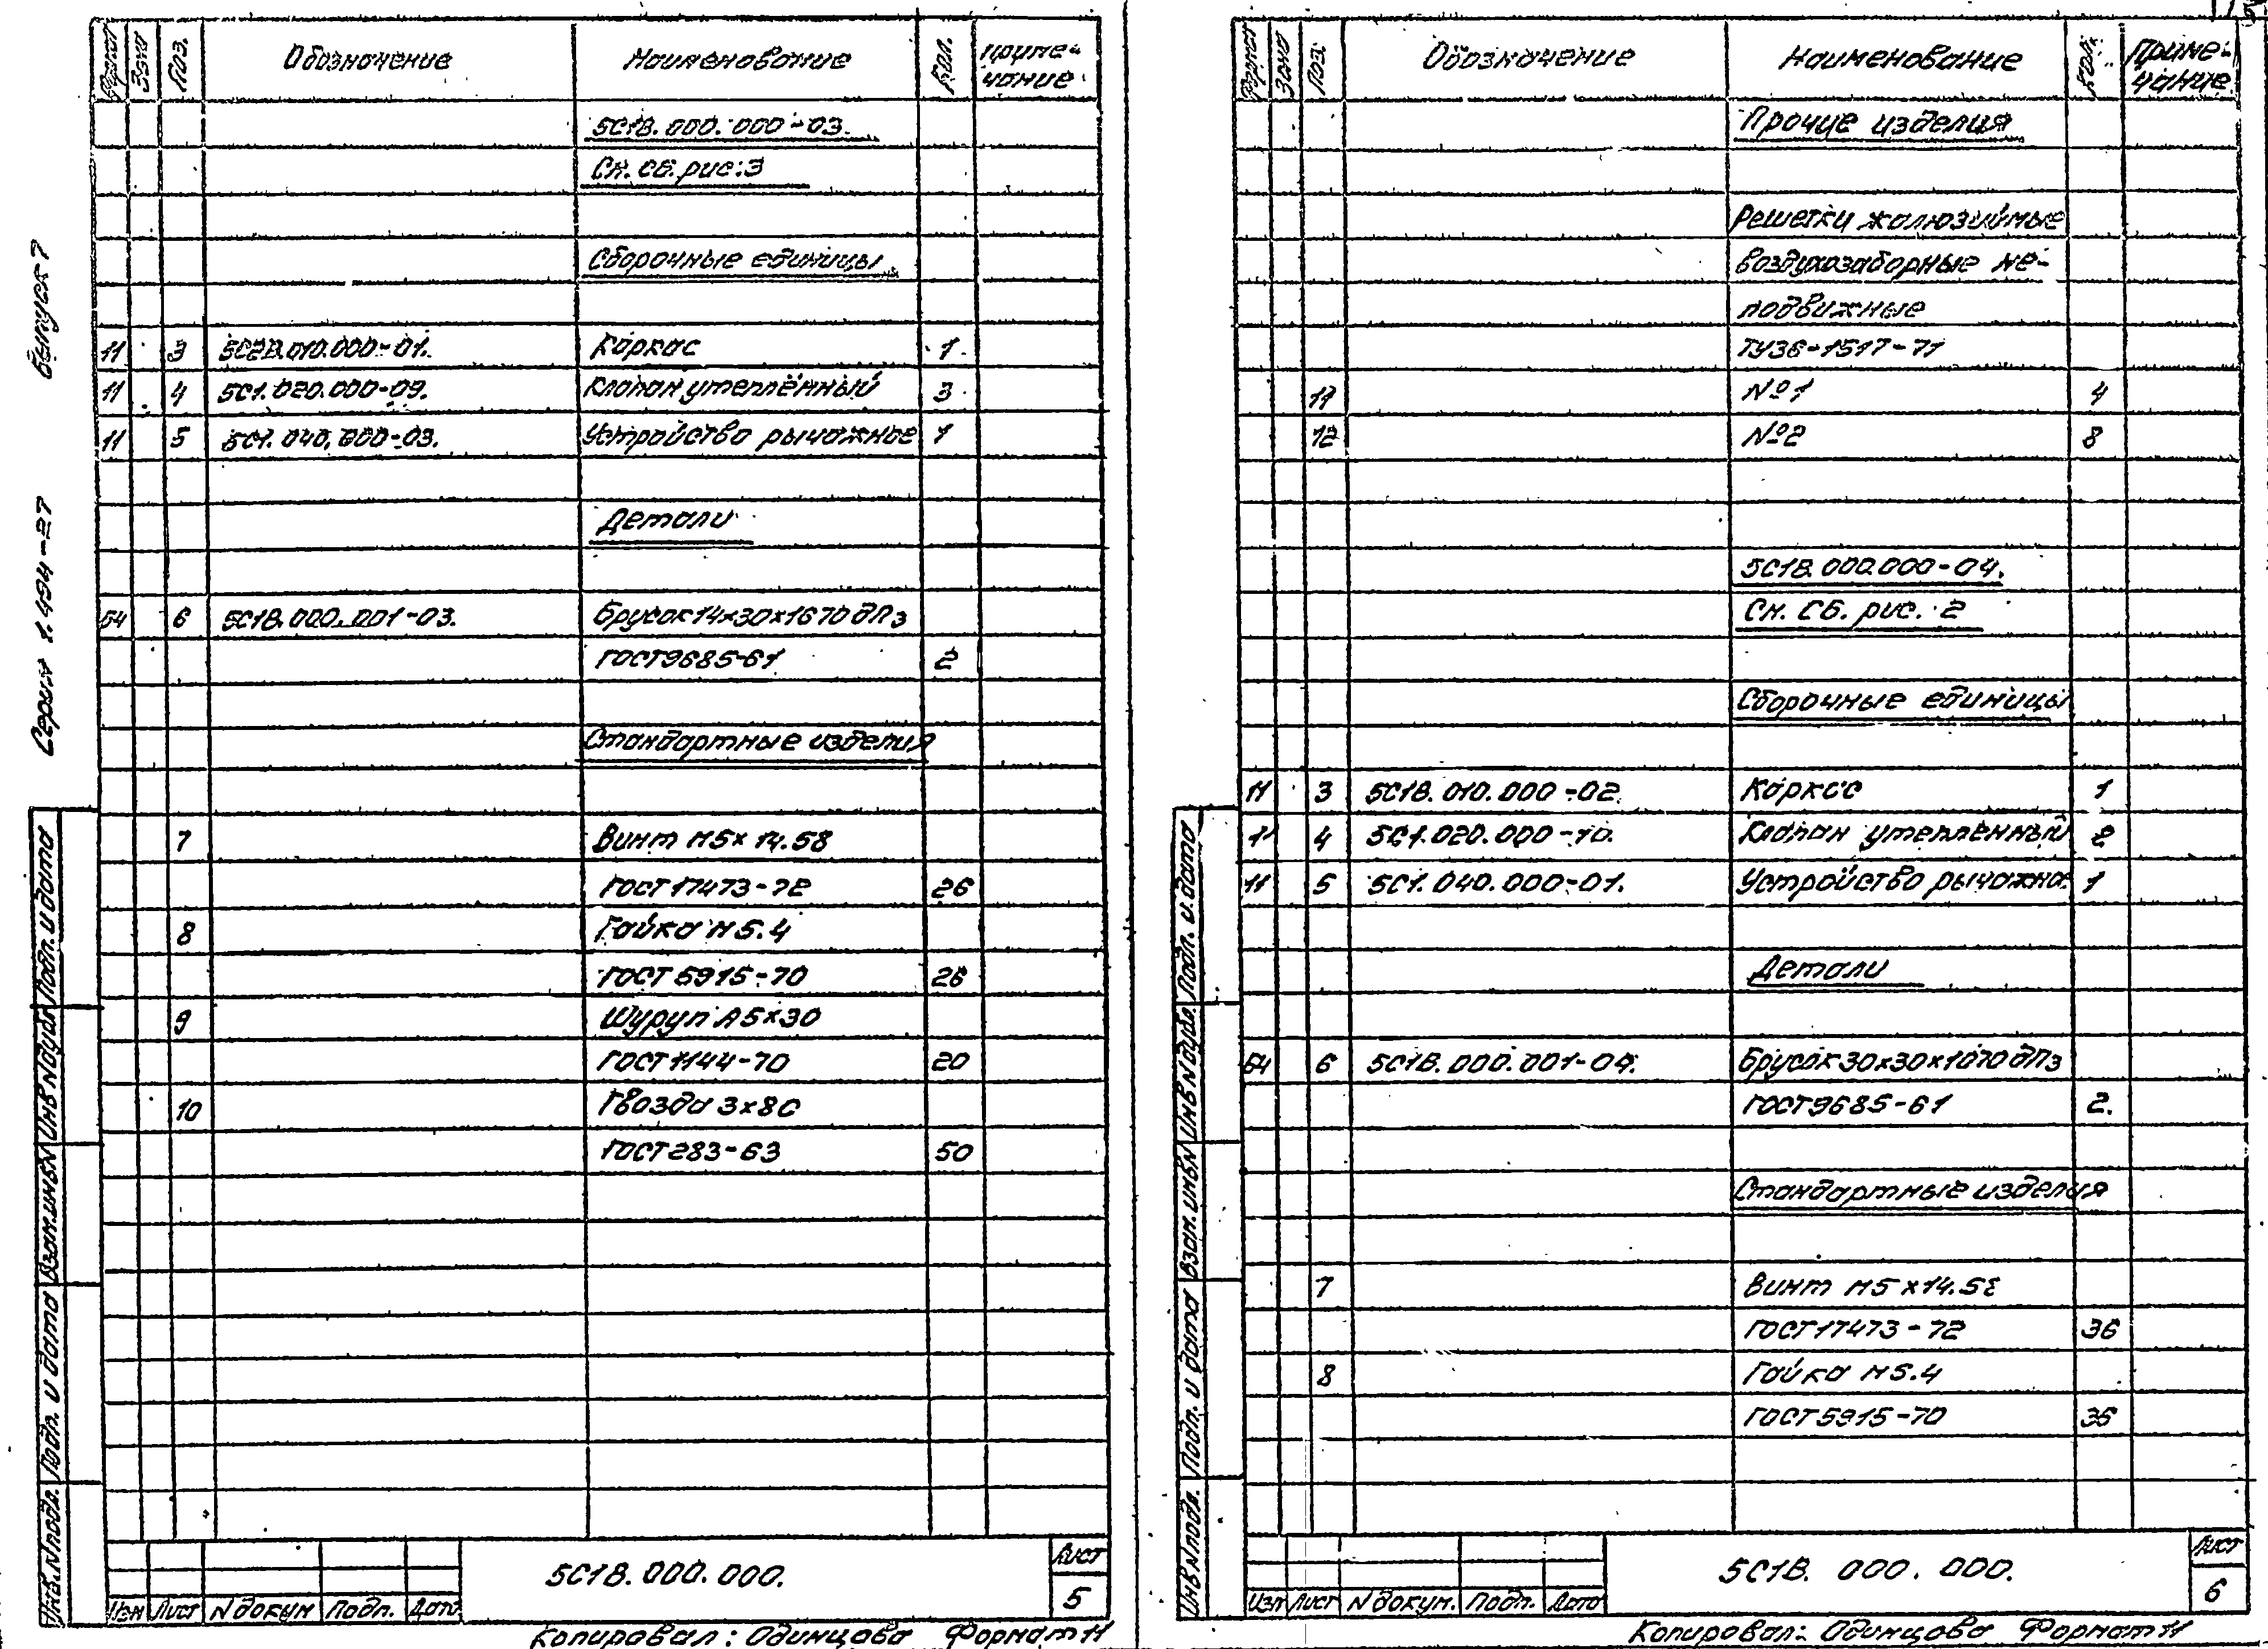 Серия 1.494-27 Выпуск 7
Формат Зона Поз. Обозначение Наименование Кол. Приме-
чание
5С1В.000.000-03.
См. сб. рис. 3
Сборочные единицы
11 3 5С2В.010.000-01. Каркас 1
11 4 5С1.020.000-09. Клапан утеплённый 3
11 5 5С1.040.000-03. Устройство рычажное 1
Детали
БЧ 6 5С1В.000.001-03. Брусок 14×30×1670 дПз
ГОСТ 9685-61 2
Стандартные изделия
7 Винт М5×14.58
ГОСТ 17473-72 26
8 Гайка М5.4
ГОСТ 5915-70 26
9 Шуруп А5×30
ГОСТ 1144-70 20
10 Гвозди 3×80
ГОСТ 283-63 50
Инв.N подл. Подп. и дата Взам.инв.N Инв.N дубл. Подп. и дата
Изм Лист N докум Подп. Дата
5С1В.000.000.
Лист
5
Копировал: Одинцова Формат 11
Формат Зона Поз. Обозначение Наименование Кол. Приме-
чание
Прочие изделия
Решетки жалюзийные
воздухозаборные не-
подвижные
ТУ36-1517-71
11 №1 4
12 №2 8
5С1В.000.000-04.
См. СБ. рис. 2
Сборочные единицы
11 3 5С1В.010.000-02. Каркас 1
11 4 5С1.020.000-10. Клапан утеплённый 2
11 5 5С1.040.000-01. Устройство рычажно. 1
Детали
БЧ 6 5С1В.000.001-04. Брусок 30×30×1070 дПз
ГОСТ 9685-61 2.
Стандартные изделия
7 Винт М5×14.58
ГОСТ 17473-72 36
8 Гайка М5.4
ГОСТ 5915-70 36
Инв.N подл. Подп. и дата Взам.инв.N Инв.N дубл. Подп. и дата
Изм Лист N докум. Подп. Дата
5С1В.000.000.
Лист
6
Копировал: Одинцова Формат 11